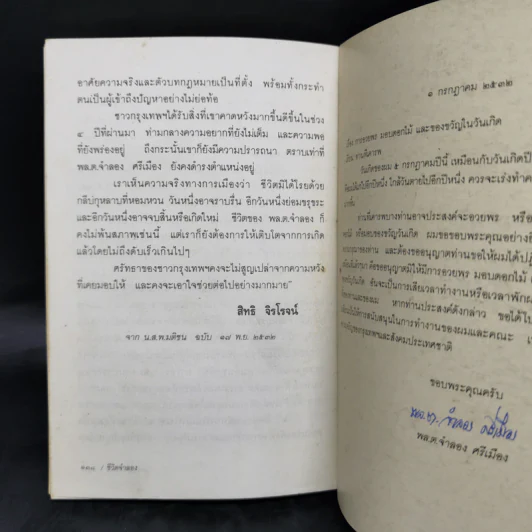 อาศัยความจริงและตัวบทกฎหมายเป็นที่ตั้ง พร้อมทั้งกระทำ
ตนเป็นผู้เข้าถึงปัญหาอย่างไม่ย่อท้อ
ชาวกรุงเทพฯได้รับสิ่งที่เขาคาดหวังมากขึ้นดีขึ้นในช่วง
๔ ปีที่ผ่านมา ท่ามกลางความอยากที่ยังไม่เต็ม และความพอ
ที่ยังพร่องอยู่ ถึงกระนั้นเขาก็ยังมีความปรารถนา ตราบเท่าที่
พล.ต.จำลอง ศรีเมือง ยังคงดำรงตำแหน่งอยู่
เราเห็นความจริงทางการเมืองว่า ชีวิตมิได้โรยด้วย
กลีบกุหลาบที่หอมหวน วันหนึ่งอาจราบรื่น อีกวันหนึ่งย่อมขรุขระ
และอีกวันหนึ่งอาจจบสิ้นหรือเกิดใหม่ ชีวิตของ พล.ต.จำลอง ก็
คงไม่พ้นสภาพเช่นนี้ แต่เราก็ยังต้องการให้เติบโตจากการเกิด
แล้วโดยไม่ถึงดับเร็วเกินไปๆ
ศรัทธาของชาวกรุงเทพฯคงจะไม่สูญเปล่าจากความหวัง
ที่เคยมอบให้ และคงจะเอาใจช่วยต่อไปอย่างมากมาย"
สิทธิ จิรโรจน์
จาก น.ส.พ.มติชน ฉบับ ๑๗ พ.ย. ๒๕๓๒
/ ชีวิตจำลอง
๑ กรกฎาคม ๒๕๓๒
เรื่อง การอวยพร มอบดอกไม้ และของขวัญในวันเกิด
เรียน ท่านที่เคารพ
วันเกิดของผม ๕ กรกฎาคมปีนี้ เหมือนกับวันเกิดปี
อีกปีหนึ่ง ใกล้วันตายไปอีกปีหนึ่ง ควรจะเร่งทำ
ท่านที่เคารพบางท่านอาจประสงค์จะอวยพร หรือ
หรือมอบของขวัญวันเกิด ผมขอขอบพระคุณอย่าง
ของท่าน และต้องขออนุญาตท่านขอให้ผมได้ปฏิ
คือขออนุญาตมิให้มีการอวยพร มอบดอกไม้
วันเกิด อันจะเป็นการเสียเวลาทำงานหรือเวลาพัก
และของผม หากท่านประสงค์ดังกล่าว ขอได้โปร
ให้การสนับสนุนในการทำงานของผมและคณะ
กรุงเทพฯและสังคมประเทศชาติ
ขอบพระคุณครับ
พล.ต. จำลอง ศรีเมือง
พล.ต.จำลอง ศรีเมือง